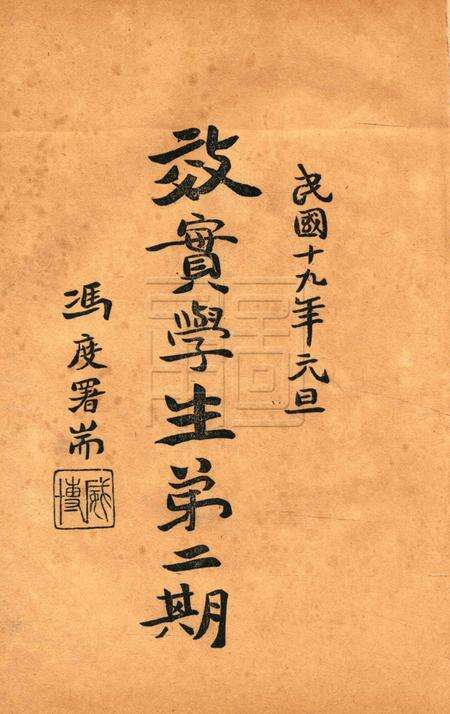 民國十九年元旦
效實學生第二期
馮度署耑
威博